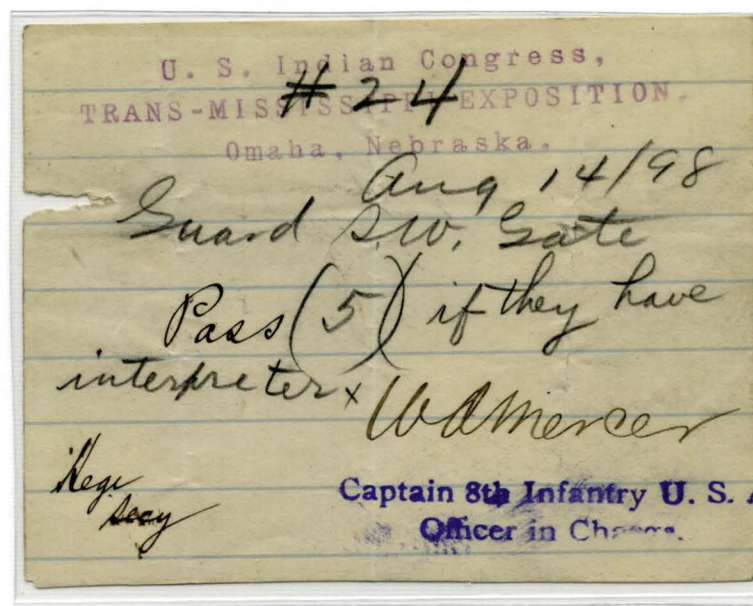 U. S. Indian Congress,
#24
TRANS-MISSISSIPPI EXPOSITION.
Omaha, Nebraska.
Aug 14/98
Guard S.W. Gate
Pass (5) if they have
interpreter x
WAMercer
Captain 8th Infantry U. S. A
Officer in Charge.
Secy